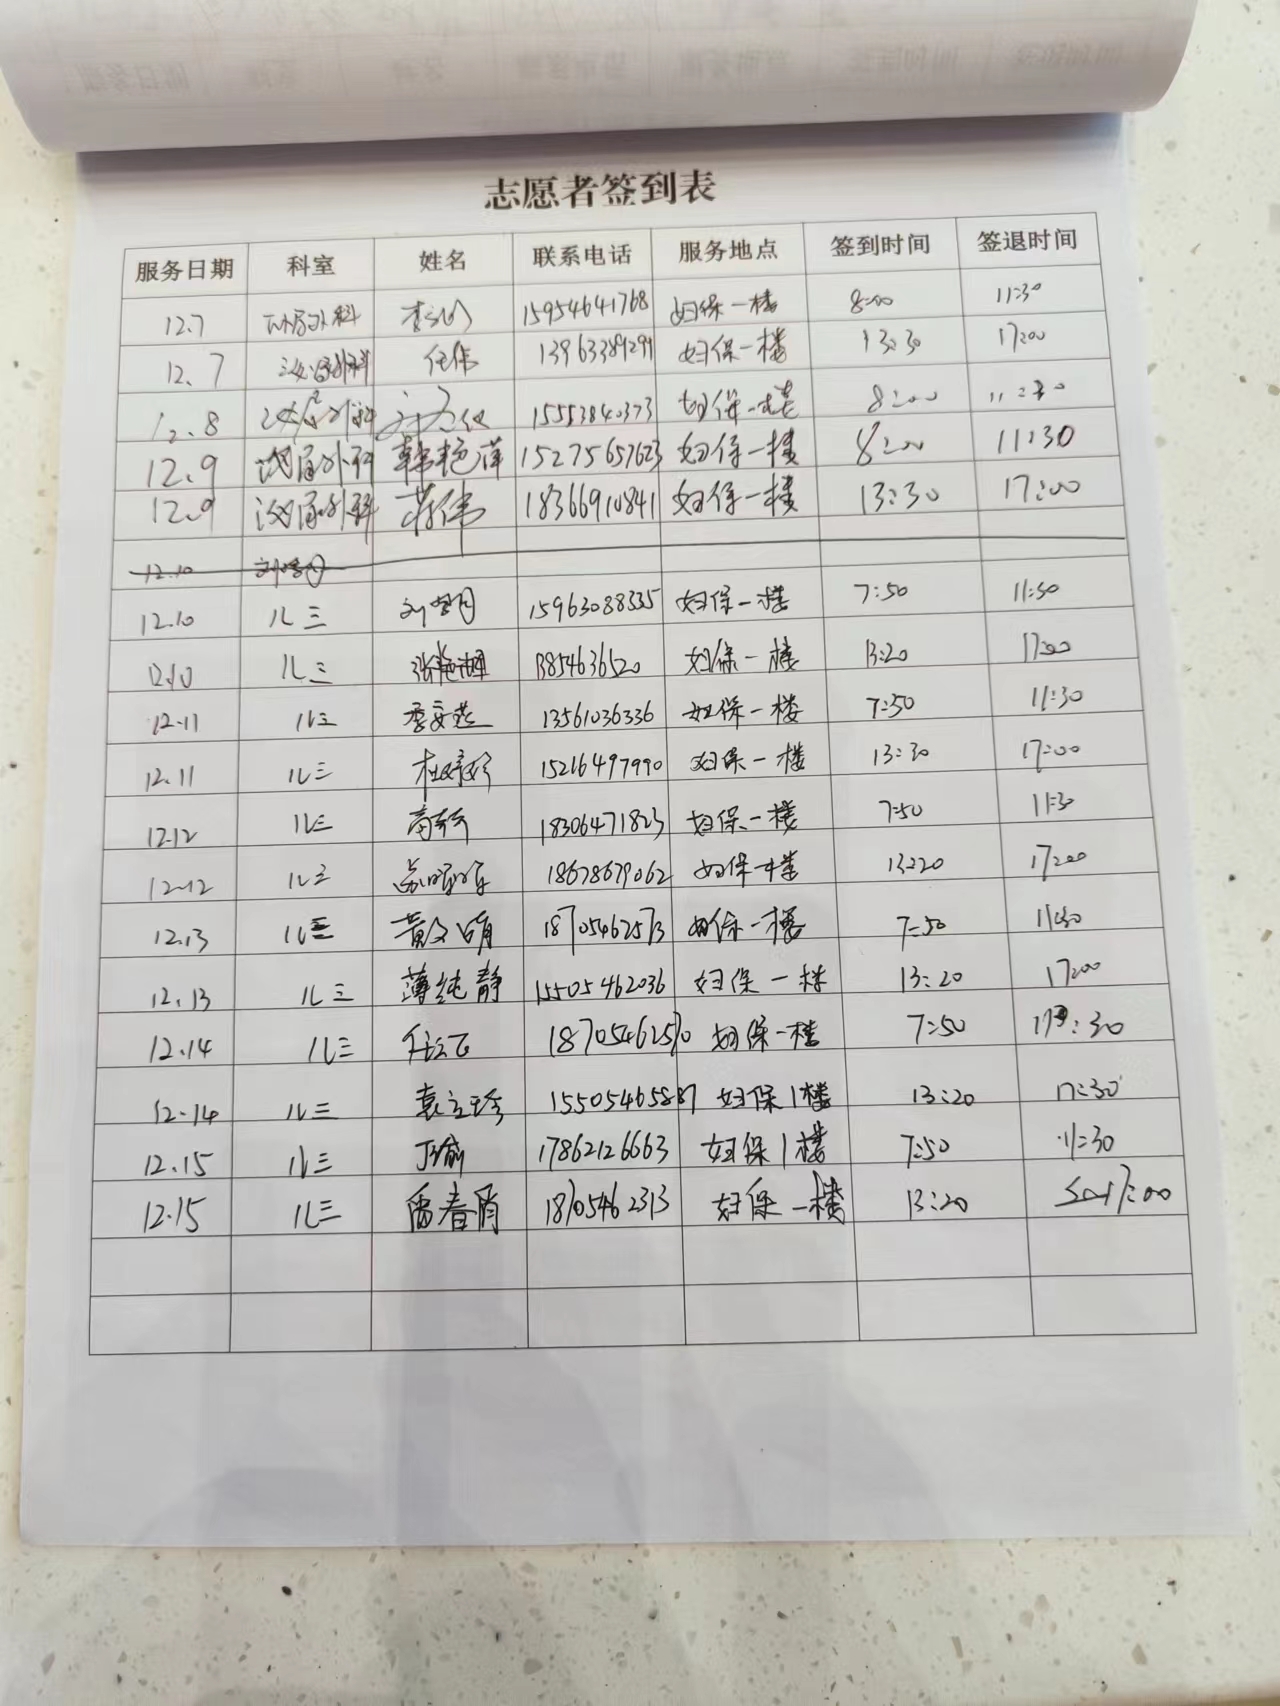 志愿者签到表
服务日期 科室 姓名 联系电话 服务地点 签到时间 签退时间
12.7 外科 15954641768 妇保一楼 8:00 11:30
12.7 泌尿外科 任伟 13963389291 妇保一楼 13:30 17:00
12.8 泌尿外科 15553840373 妇保一楼 8:00 11:30
12.9 泌尿外科 韩艳萍 15275657623 妇保一楼 8:00 11:30
12.9 泌尿外科 蒋伟 18366910841 妇保一楼 13:30 17:00
12.10
12.10 儿三 15963088335 妇保一楼 7:50 11:30
12.10 儿三 13854636520 妇保一楼 13:20 17:00
12.11 儿三 13561036336 妇保一楼 7:50 11:30
12.11 儿三 杜婷婷 15216497990 妇保一楼 13:30 17:00
12.12 儿三 18306471823 妇保一楼 7:50 11:30
12.12 儿三 18678679062 妇保一楼 13:20 17:00
12.13 儿三 黄文娟 18705462573 妇保一楼 7:50 11:30
12.13 儿三 薄纯静 15505462036 妇保一楼 13:20 17:00
12.14 儿三 18705462570 妇保一楼 7:50 11:30
12.14 儿三 袁立珍 15505465887 妇保1楼 13:20 17:30
12.15 儿三 丁瑜 17862126663 妇保1楼 7:50 11:30
12.15 儿三 18705462313 妇保一楼 13:20 17:00